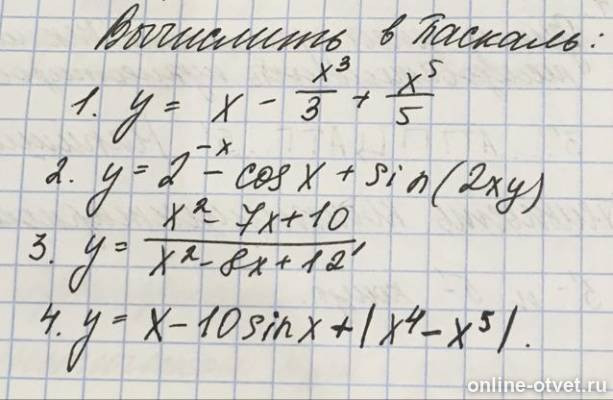 Вычислить в Паскаль:
1. y = x - x³/3 + x⁵/5
2. y = 2⁻ˣ - cos x + sin(2xy)
3. y = (x² - 7x + 10)/(x² - 8x + 12)'
4. y = x - 10 sin x + |x⁴ - x⁵|.
online-otvet.ru